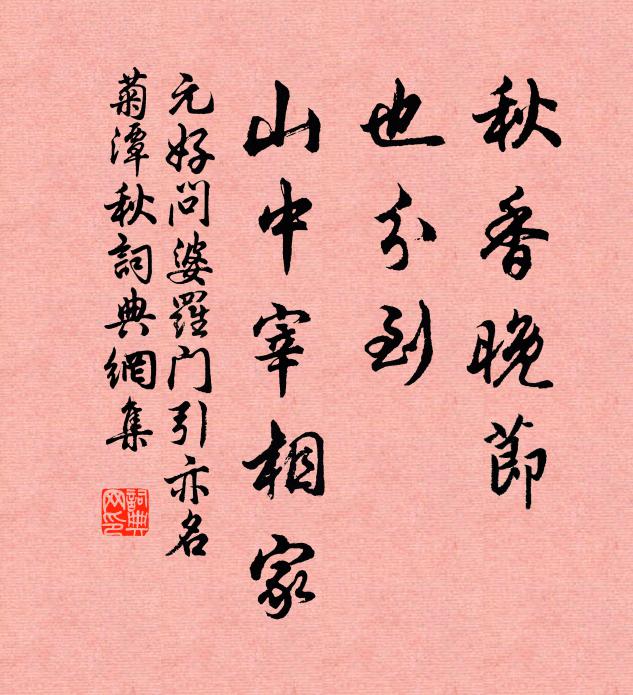 秋香晚節
也分到
山中宰相家
元好問婆羅门引亦名
菊潭秋詞典網集
詞典网印